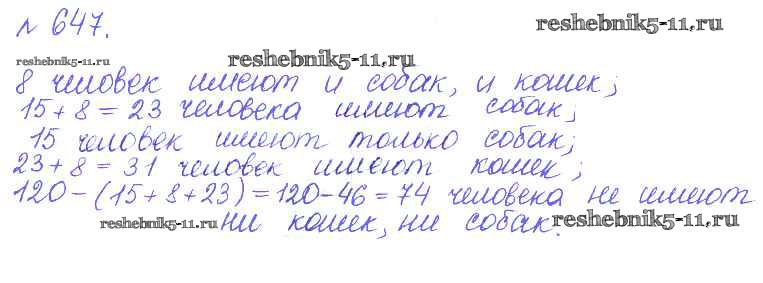 № 647.
reshebnik5-11.ru
reshebnik5-11.ru
reshebnik5-11.ru
8 человек имеют и собак, и кошек;
15+8=23 человека имеют собак;
15 человек имеют только собак;
23+8=31 человек имеют кошек;
120-(15+8+23)=120-46=74 человека не имеют
reshebnik5-11.ru ни кошек, ни собак. reshebnik5-11.ru